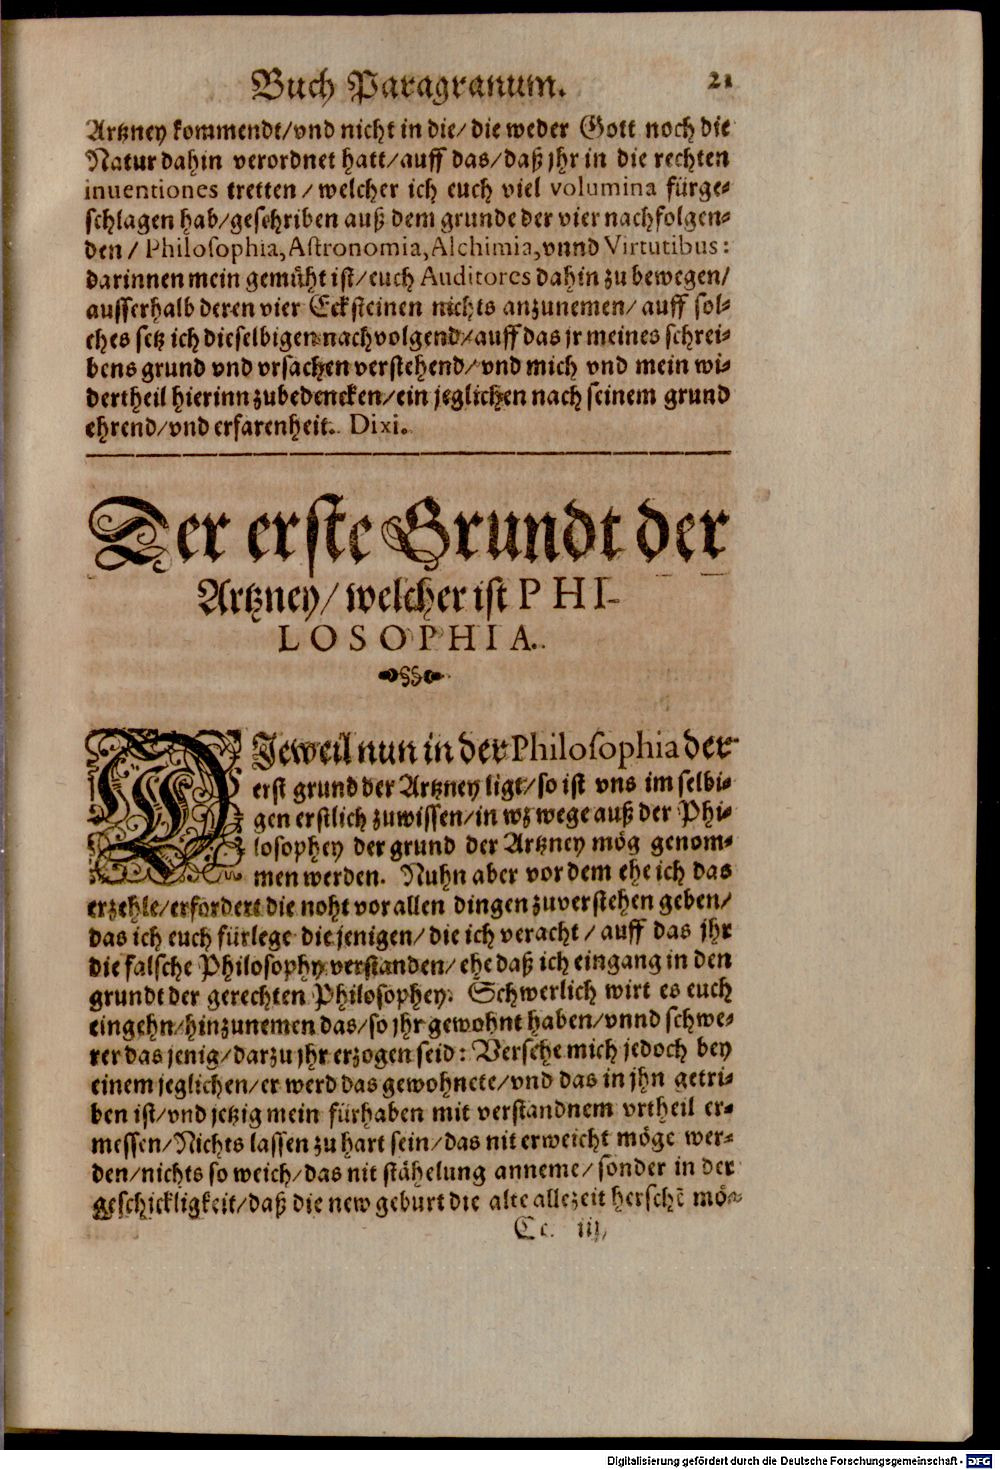 Buch Paragranum. 21
Artzney kommendt/vnd nicht in die/die weder Gott noch die
Natur dahin verordnet hatt/auff das/daß jhr in die rechten
inuentiones tretten/welcher ich euch viel volumina fürge-
schlagen hab/geschriben auß dem grunde der vier nachfolgen-
den/Philosophia, Astronomia, Alchimia, vnnd Virtutibus:
darinnen mein gemüht ist/euch Auditores dahin zu bewegen/
ausserhalb deren vier Ecksteinen nichts anzunemen/auff sol-
ches setz ich dieselbigen nachvolgend/auff das jr meines schrei-
bens grund vnd vrsachen verstehend/vnd mich vnd mein wi-
dertheil hierinn zubedencken/ein jeglichen nach seinem grund
ehrend/vnd erfarenheit. Dixi.
Der erste Grundt der
Artzney/welcher ist PHI-
LOSOPHIA.
DIeweil nun in der Philosophia der
erst grund der Artzney ligt/so ist vns im selbi-
gen erstlich zuwissen/in wz wege auß der Phi-
losophey der grund der Artzney mög genom-
men werden. Nuhn aber vor dem ehe ich das
erzehle/erfordert die noht vor allen dingen zuverstehen geben/
das ich euch fürlege die jenigen/die ich veracht/auff das jhr
die falsche Philosophy verstanden/ehe daß ich eingang in den
grundt der gerechten Philosophey. Schwerlich wirt es euch
eingehn/hinzunemen das/so jhr gewohnt haben/vnnd schwe-
rer das jenig/darzu jhr erzogen seid: Versehe mich jedoch bey
einem jeglichen/er werd das gewohnete/vnd das in jhn getri-
ben ist/vnd jetzig mein fürhaben mit verstandnem vrtheil er-
messen/Nichts lassen zu hart sein/das nit erweicht möge wer-
den/nichts so weich/das nit stähelung anneme/sonder in der
geschickligkeit/daß die new geburt die alte allezeit herschē mö-
Cc iij
Digitalisierung gefördert durch die Deutsche Forschungsgemeinschaft - DFG